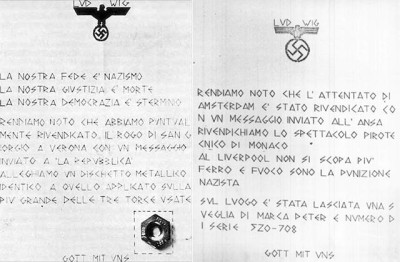 LVD WIG
LA NOSTRA FEDE E' NAZISMO
LA NOSTRA GIVSTIZIA E' MORTE
LA NOSTRA DEMOCRAZIA E' STERMINIO
RENDIAMO NOTO CHE ABBIAMO PVNTVAL
MENTE RIVENDICATO IL ROGO DI SAN G
IORGIO A VERONA CON VN MESSAGGIO
INVIATO A "LA REPVBBLICA"
ALLEGHIAMO VN DISCHETTO METALLICO
IDENTICO A QVELLO APPLICATO SVLLA
PIV' GRANDE DELLE TRE TORCE VSATE
GOTT MIT VNS
LVD WIG
RENDIAMO NOTO CHE L'ATTENTATO DI
AMSTERDAM E' STATO RIVENDICATO CO
N VN MESSAGGIO INVIATO ALL'ANSA
RIVENDICHIAMO LO SPETTACOLO PIROTE
CNICO DI MONACO
AL LIVERPOOL NON SI SCOPA PIV'
FERRO E FVOCO SONO LA PVNIZIONE
NAZISTA
SVL LVOGO E' STATA LASCIATA VNA S
VEGLIA DI MARCA PETER E NVMERO D
I SERIE
GOTT MIT VNS